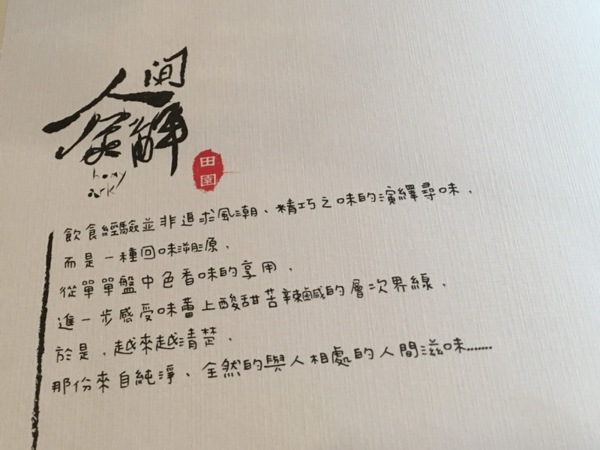 人間
田園
飲食經驗並非追求風潮、精巧之味的演繹尋味，
而是一種回味溯源，
從單單盤中色香味的享用，
進一步感受味蕾上酸甜苦辣鹹的層次界線，
於是，越來越清楚，
那份來自純淨、全然的與人相處的人間滋味……